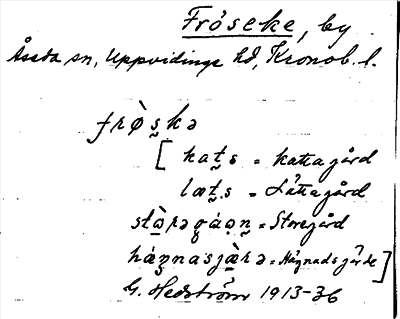 Fröseke, by
Åseda sn, Uppvidinge hd, Kronob. l.
frø̀s̬kə
[ kat̬s = kattagård
læt̬s = Lättagård
stæ̀rəgáən̬ = Storegård
háŋnasjæ̀rə = Hägnadsgärde]
G. Hedström 1913-36